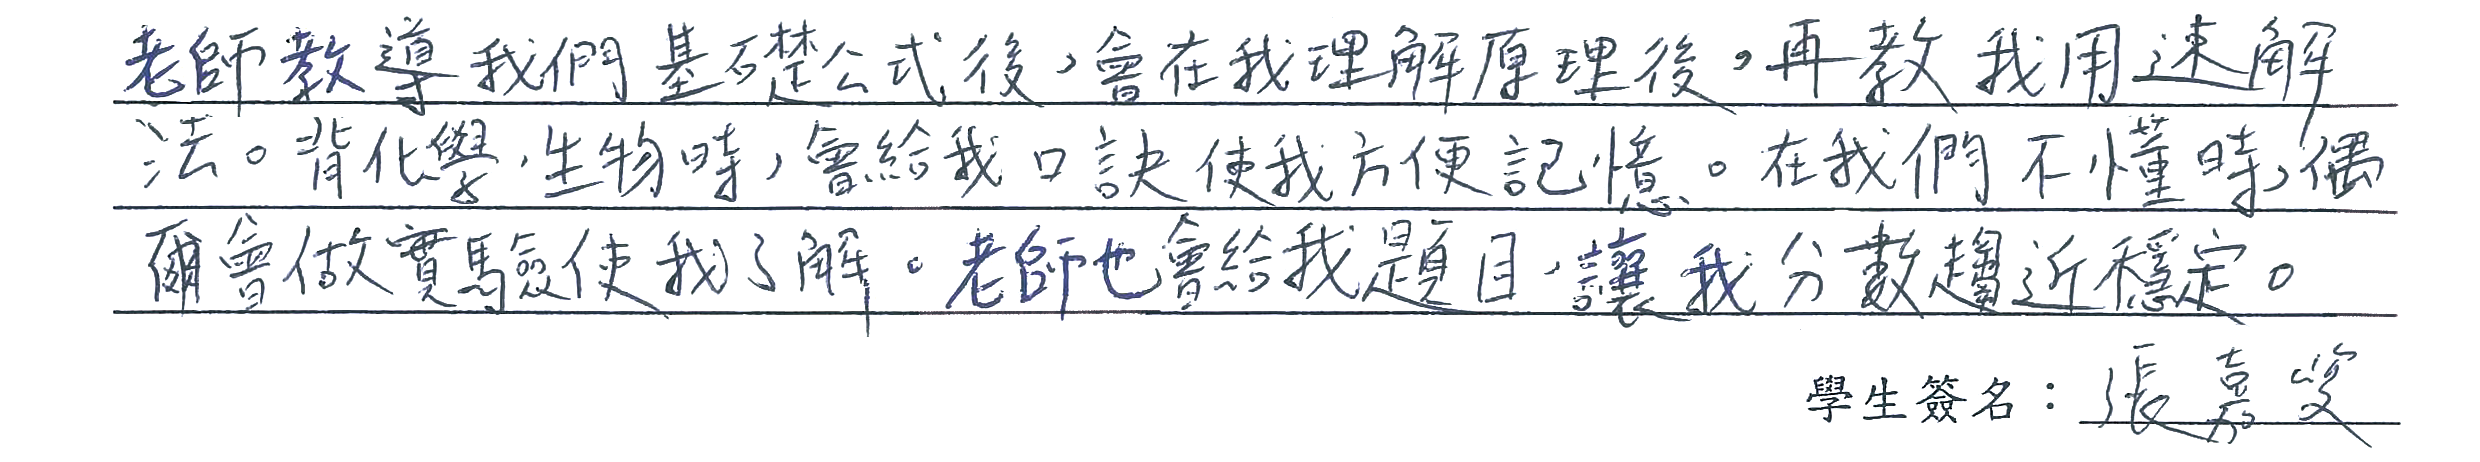 老師教導我們基礎公式後，會在我理解原理後，再教我用速解
法。背化學、生物時，會給我口訣使我方便記憶。在我們不懂時，偶
爾會做實驗使我了解。老師也會給我題目，讓我分數趨近穩定。
學生簽名：張嘉